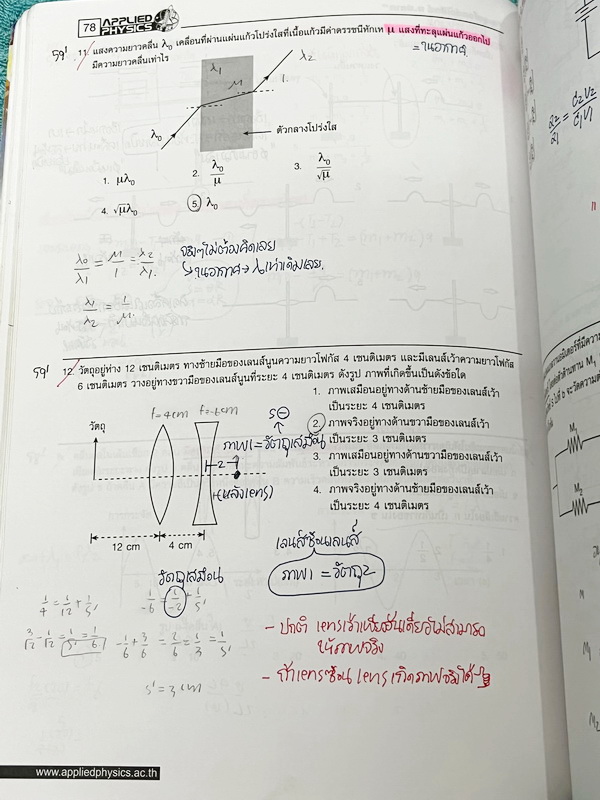 78 APPLIED PHYSICS
11. แสงความยาวคลื่น λ₀ เคลื่อนที่ผ่านแผ่นแก้วโปร่งใสที่เนื้อแก้วมีค่าดรรชนีหักเห μ แสงที่ทะลุแผ่นแก้วออกไป
มีความยาวคลื่นเท่าไร
= ในอากาศ
λ₁
μ
λ₂
1.
λ₀
ตัวกลางโปร่งใส
1. μλ₀
2. λ₀/μ
3. λ₀/√μ
4. √μλ₀
5. λ₀
λ₀/λ₁ = μ/1 = λ₂/λ₁
จริงๆไม่ต้องคิดเลย
ในอากาศ → λ เท่าเดิมเลย
λ₁/λ₂ = 1/μ
12. วัตถุอยู่ห่าง 12 เซนติเมตร ทางซ้ายมือของเลนส์นูนความยาวโฟกัส 4 เซนติเมตร และมีเลนส์เว้าความยาวโฟกัส
6 เซนติเมตร วางอยู่ทางขวามือของเลนส์นูนที่ระยะ 4 เซนติเมตร ดังรูป ภาพที่เกิดขึ้นเป็นดังข้อใด
1. ภาพเสมือนอยู่ทางด้านซ้ายมือของเลนส์เว้า
เป็นระยะ 4 เซนติเมตร
2. ภาพจริงอยู่ทางด้านขวามือของเลนส์เว้า
เป็นระยะ 3 เซนติเมตร
3. ภาพเสมือนอยู่ทางด้านขวามือของเลนส์เว้า
เป็นระยะ 3 เซนติเมตร
4. ภาพจริงอยู่ทางด้านซ้ายมือของเลนส์เว้า
เป็นระยะ 4 เซนติเมตร
f=4cm
f=-6cm
S⊖
วัตถุ
ภาพ1 = วัตถุเสมือน
2
(หลังเลนส์)
12 cm
4 cm
เลนส์ซ้อนเลนส์
ภาพ1 = วัตถุ2
วัตถุเสมือน
1/4 = 1/12 + 1/s'
1/-6 = 1/-2 + 1/s'
3/12 - 1/12 = 1/s' = 1/6
-1/6 + 3/6 = 2/6 = 1/3 = 1/s'
s' = 3 cm
- ปกติ เลนส์เว้าเพียงอันเดียวไม่สามารถ
ให้ภาพจริง
- ถ้าเลนส์ซ้อน เลนส์เกิดภาพจริงได้
www.appliedphysics.ac.th
M₁
M₂